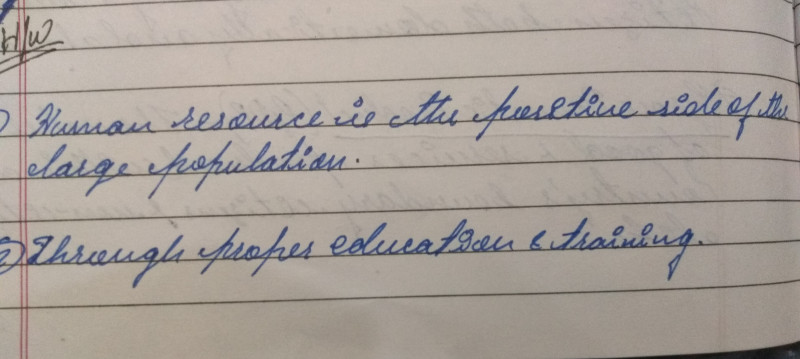 H/W
1) Human resource is the positive side of the
large population.
2) Through proper education & training.